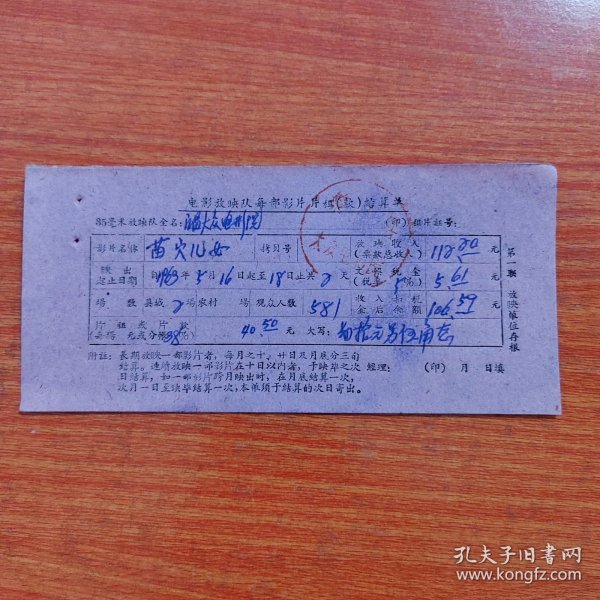 电影放映队每部影片片租(款)结算单
35毫米放映队全名: 大众电影院 (印) 租片证号:
影片名称 苗家儿女 拷贝号 放映收入(票款总收入) 112.20 元
映出起止日期 自1963年5月16日起至18日止共2天 文娱税金(税率5%) 5.61 元
场数 县城2场农村 场 观众人数 581 收入扣税金后余额 106.59 元
片租或片款 每场 元或分帐38% 40.50 元 大写: 肆拾元另伍角
附注: 长期放映一部影片者,每月之十、廿日及月底分三旬
结算。连续放映一部影片在十日以内者,于映毕之次 经理: (印) 月 日填
日结算,如一部影片跨月映出时,在月底结算一次,
次月一日至映毕结算一次,本单须于结算的次日寄出。
第一联 放映单位存根
孔夫子旧书网
www.kongfz.com